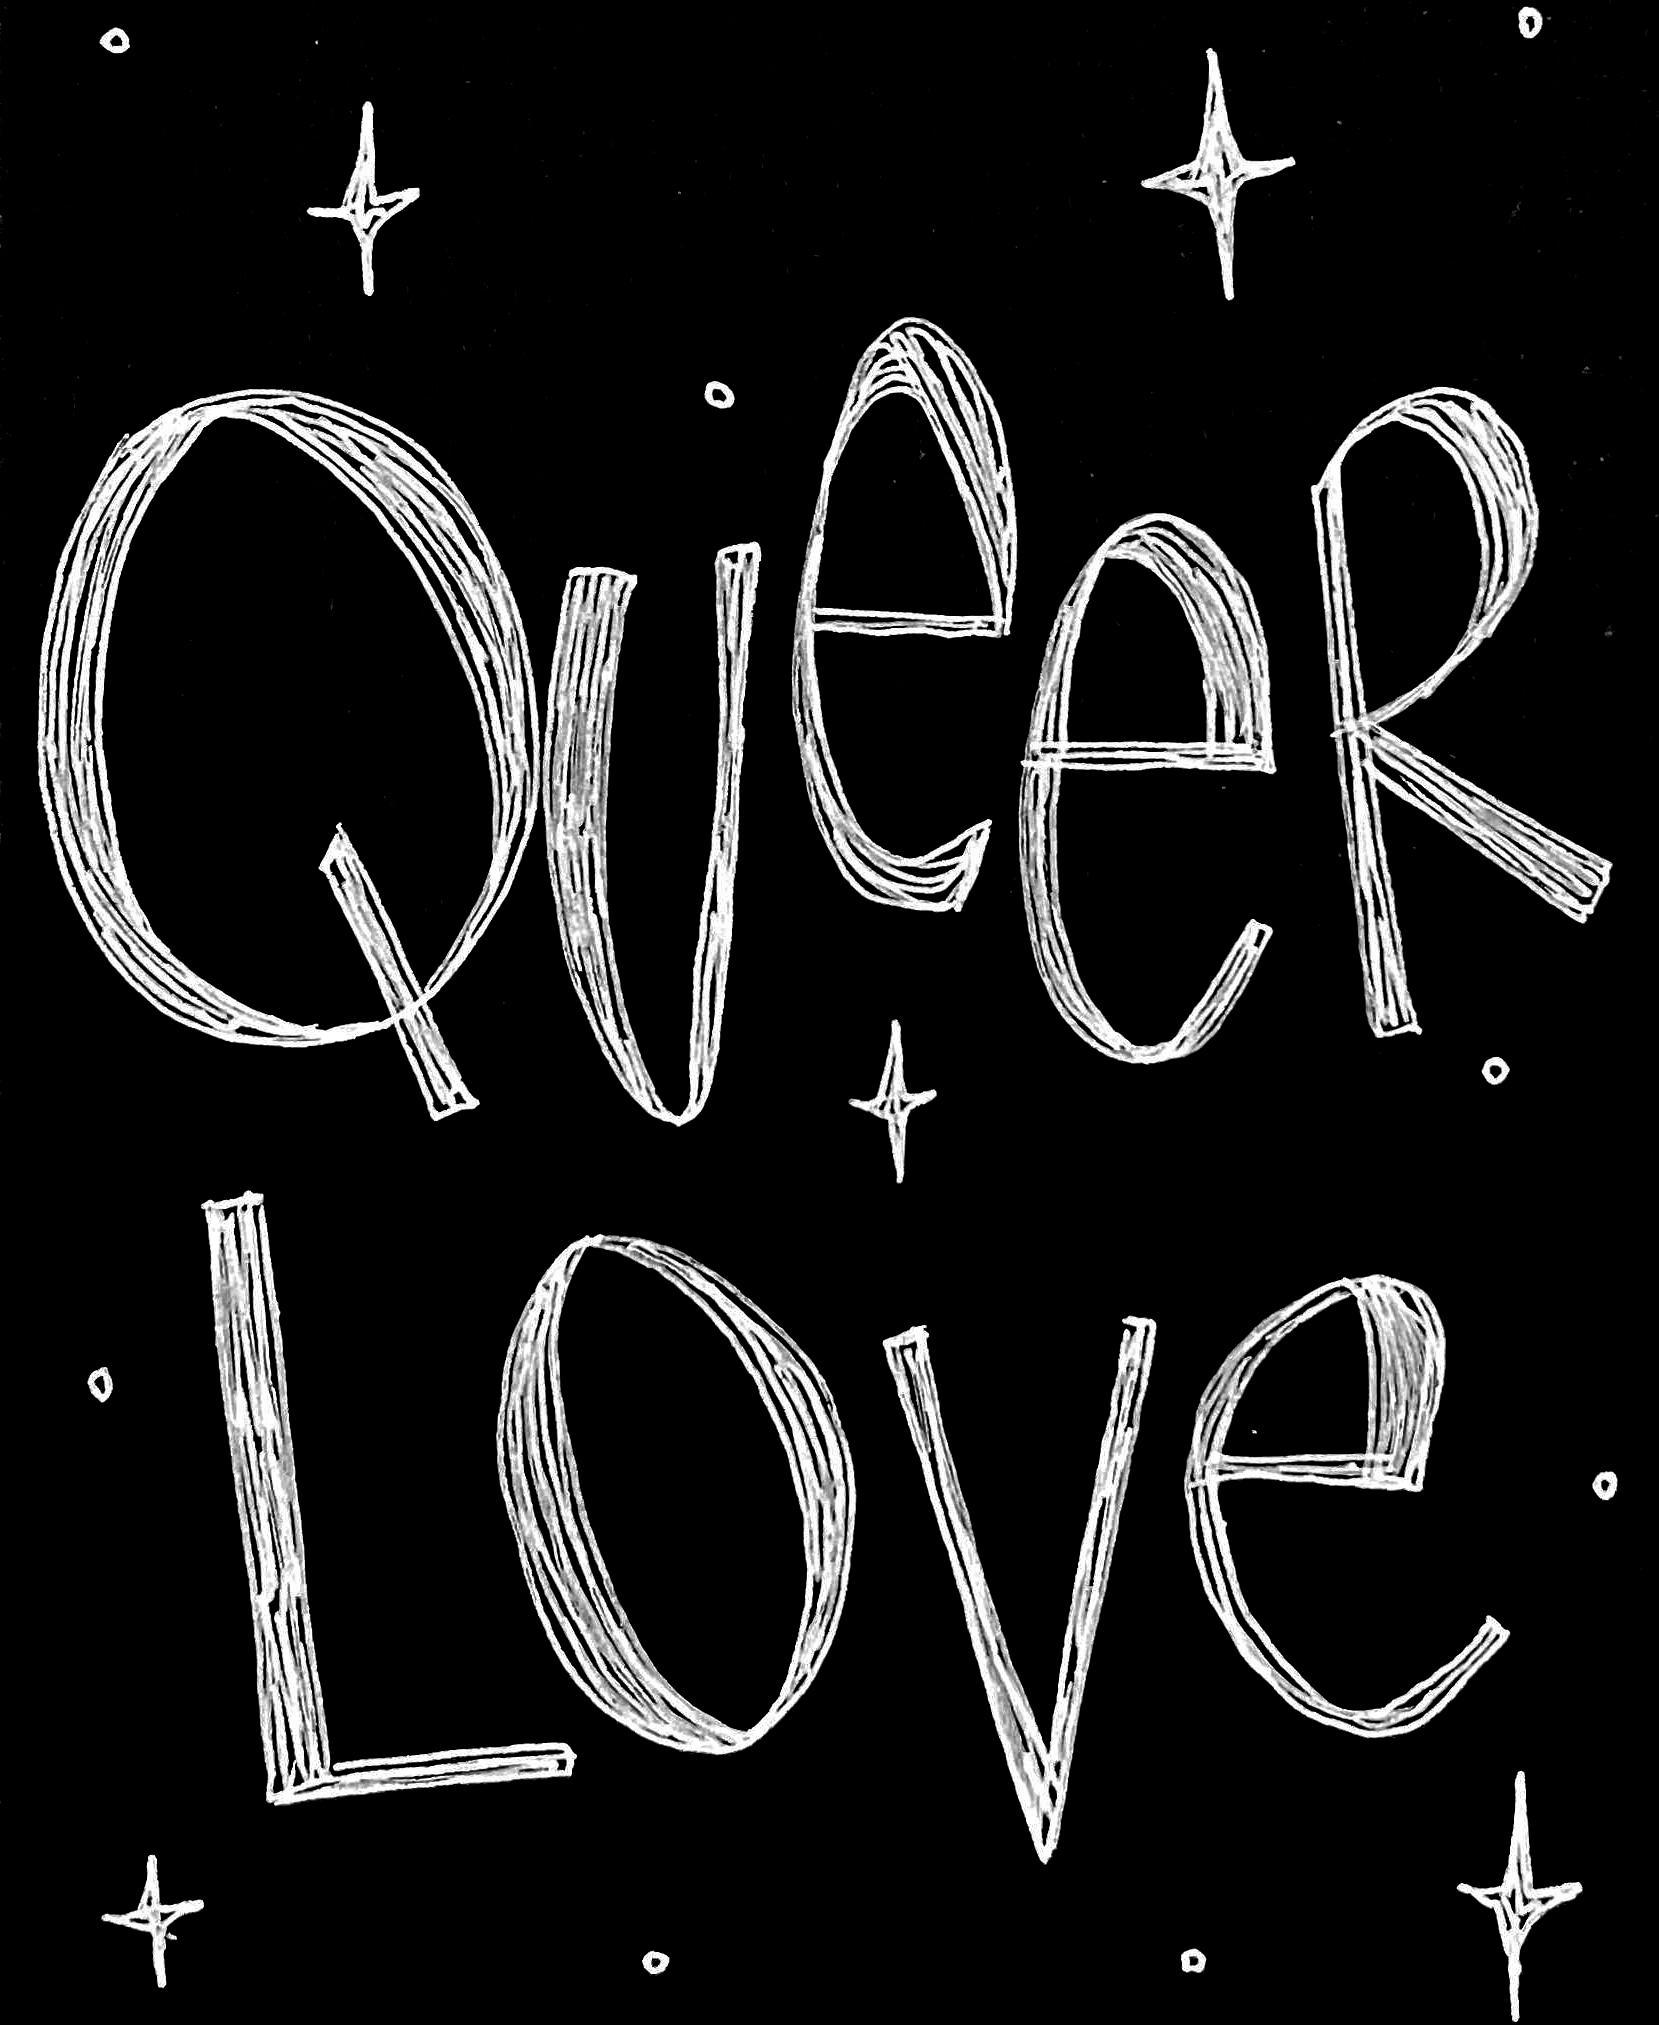 QUeeR
LOVe